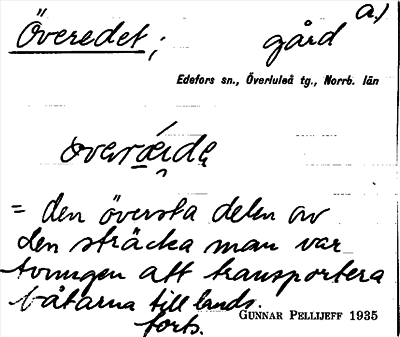 Överedet; gård a.)
Edefors sn., Överluleå tg., Norrb. län
overæide
= den översta delen av
den sträcka man var
tvungen att transportera
båtarna till lands.
forts. GUNNAR PELLIJEFF 1935